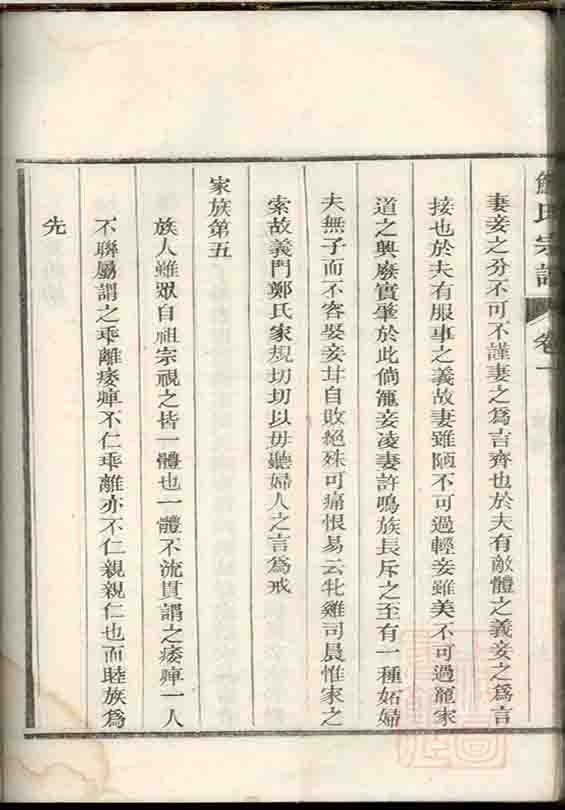 氏宗譜 卷一
妻妾之分不可不謹妻之爲言齊也於夫有敵體之義妾之爲言
接也於夫有服事之義故妻雖陋不可過輕妾雖美不可過寵家
道之興廢實肇於此倘寵妾凌妻許鳴族長斥之至有一種妬婦
夫無子而不容娶妾甘自敗絕殊可痛恨易云牝雞司晨惟家之
索故義門鄭氏家規切切以毋聽婦人之言爲戒
家族第五
族人雖眾自祖宗視之皆一體也一體不流貫謂之痿痺一人
不聯屬謂之乖離痿痺不仁乖離亦不仁親親仁也而睦族爲
先